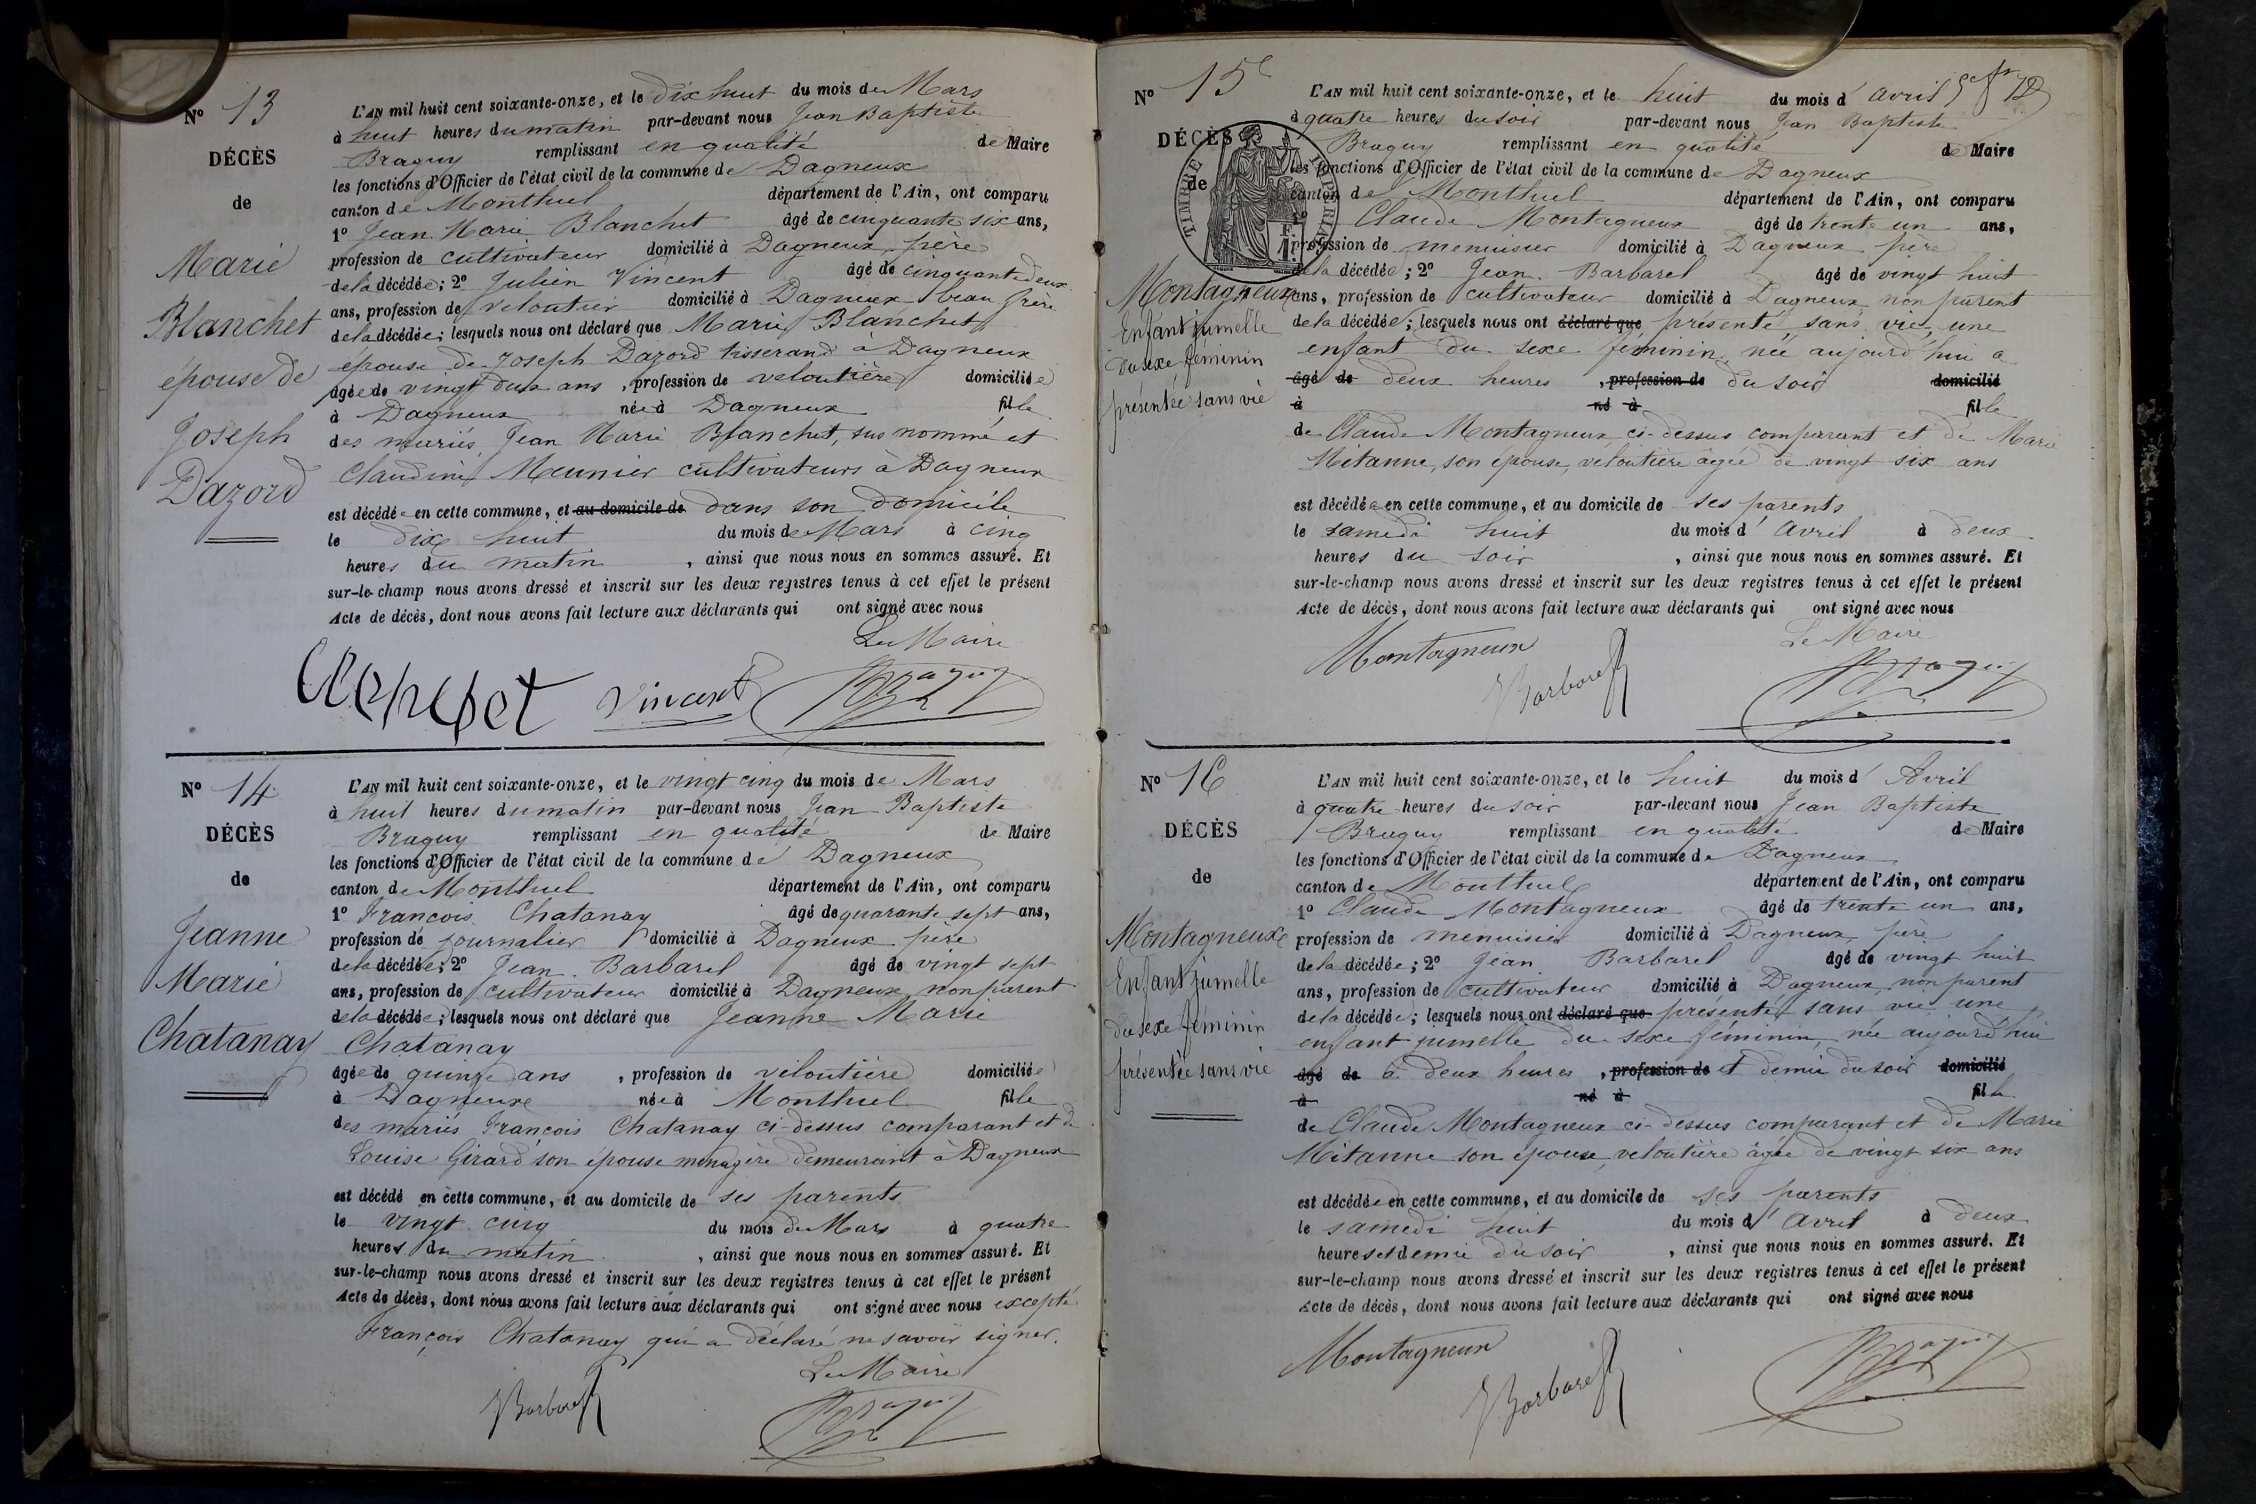 N° 13
DÉCÈS
de
Marie
Blanchet
épouse de
Joseph
Dazord
L'AN mil huit cent soixante-onze, et le dix huit du mois de Mars
à huit heures du matin par-devant nous Jean Baptiste
Braguy remplissant en qualité de Maire
les fonctions d'Officier de l'état civil de la commune de Dagneux
canton de Montluel département de l'Ain, ont comparu
1° Jean Marie Blanchet âgé de cinquante six ans,
profession de cultivateur domicilié à Dagneux père
de la décédée; 2° Julien Vincent âgé de cinquante deux
ans, profession de veloutier domicilié à Dagneux beau frère
de la décédée; lesquels nous ont déclaré que Marie Blanchet
épouse de Joseph Dazord tisserand à Dagneux
âgée de vingt deux ans, profession de veloutière domiciliée
à Dagneux née à Dagneux fille
des mariés Jean Marie Blanchet, sus nommé et
Claudine Meunier cultivateurs à Dagneux
est décédée en cette commune, et au domicile de dans son domicile
le dix huit du mois de Mars à cinq
heures du matin, ainsi que nous nous en sommes assuré. Et
sur-le-champ nous avons dressé et inscrit sur les deux registres tenus à cet effet le présent
Acte de décès, dont nous avons fait lecture aux déclarants qui ont signé avec nous
Le Maire
Vincent Braguy
N° 14
DÉCÈS
de
Jeanne
Marie
Chatanay
L'AN mil huit cent soixante-onze, et le vingt cinq du mois de Mars
à huit heures du matin par-devant nous Jean Baptiste
Braguy remplissant en qualité de Maire
les fonctions d'Officier de l'état civil de la commune de Dagneux
canton de Montluel département de l'Ain, ont comparu
1° François Chatanay âgé de quarante sept ans,
profession de journalier domicilié à Dagneux père
de la décédée; 2° Jean Barbarel âgé de vingt sept
ans, profession de cultivateur domicilié à Dagneux non parent
de la décédée; lesquels nous ont déclaré que Jeanne Marie
Chatanay
âgée de quinze ans, profession de veloutière domiciliée
à Dagneux née à Montluel fille
des mariés François Chatanay ci-dessus comparant et de
Louise Girard son épouse ménagère demeurant à Dagneux
est décédé en cette commune, et au domicile de ses parents
le vingt cinq du mois de Mars à quatre
heures du matin, ainsi que nous nous en sommes assuré. Et
sur-le-champ nous avons dressé et inscrit sur les deux registres tenus à cet effet le présent
Acte de décès, dont nous avons fait lecture aux déclarants qui ont signé avec nous excepté
François Chatanay qui a déclaré ne savoir signer.
Le Maire
Barbarel Braguy
N° 15
DÉCÈS
de
TIMBRE IMPERIAL
Montagneux
Enfant jumelle
du sexe féminin
présentée sans vie
L'AN mil huit cent soixante-onze, et le huit du mois d'avril
à quatre heures du soir par-devant nous Jean Baptiste
Braguy remplissant en qualité de Maire
les fonctions d'Officier de l'état civil de la commune de Dagneux
canton de Montluel département de l'Ain, ont comparu
1° Claude Montagneux âgé de trente un ans,
profession de menuisier domicilié à Dagneux père
de la décédée; 2° Jean Barbarel âgé de vingt huit
ans, profession de cultivateur domicilié à Dagneux non parent
de la décédée; lesquels nous ont déclaré que présenté sans vie, une
enfant du sexe féminin, née aujourd'hui à
âgé de deux heures, profession de du soir domicilié
à né à fille
de Claude Montagneux ci-dessus comparant et de Marie
Mitanne, son épouse, veloutière âgée de vingt six ans
est décédée en cette commune, et au domicile de ses parents
le samedi huit du mois d'avril à deux
heures du soir, ainsi que nous nous en sommes assuré. Et
sur-le-champ nous avons dressé et inscrit sur les deux registres tenus à cet effet le présent
Acte de décès, dont nous avons fait lecture aux déclarants qui ont signé avec nous
Le Maire
Montagneux Barbarel Braguy
N° 16
DÉCÈS
de
Montagneux
Enfant jumelle
du sexe féminin
présentée sans vie
L'AN mil huit cent soixante-onze, et le huit du mois d'Avril
à quatre heures du soir par-devant nous Jean Baptiste
Braguy remplissant en qualité de Maire
les fonctions d'Officier de l'état civil de la commune de Dagneux
canton de Montluel département de l'Ain, ont comparu
1° Claude Montagneux âgé de trente un ans,
profession de menuisier domicilié à Dagneux père
de la décédée; 2° Jean Barbarel âgé de vingt huit
ans, profession de cultivateur domicilié à Dagneux non parent
de la décédée; lesquels nous ont déclaré que présenté sans vie une
enfant jumelle du sexe féminin, née aujourd'hui
âgé de à deux heures, profession de et demie du soir domicilié
à né à fille
de Claude Montagneux ci-dessus comparant et de Marie
Mitanne son épouse, veloutière âgée de vingt six ans
est décédée en cette commune, et au domicile de ses parents
le samedi huit du mois d'avril à deux
heures et demie du soir, ainsi que nous nous en sommes assuré. Et
sur-le-champ nous avons dressé et inscrit sur les deux registres tenus à cet effet le présent
Acte de décès, dont nous avons fait lecture aux déclarants qui ont signé avec nous
Montagneux Barbarel Braguy